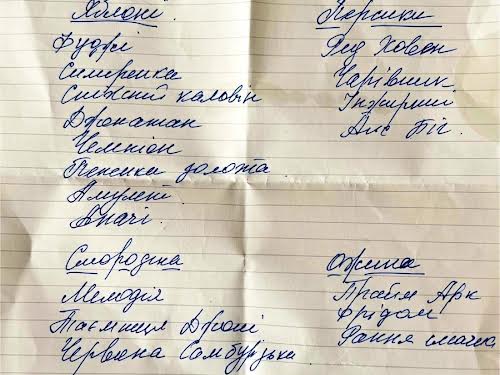 Яблоні.
Фуджі
Симиренка
Сніжний кальвін
Джонатан
Чемпіон
Пенсика золота
Амулет
Апачі
Персики
Ред Ховен
Чарівник
Інжирний
Біг.
Смородина
Мелодія
Таємниця Джоні
Червона Самбурзька
Ожина
Прайм Арк
Фрідом
Рання смачна